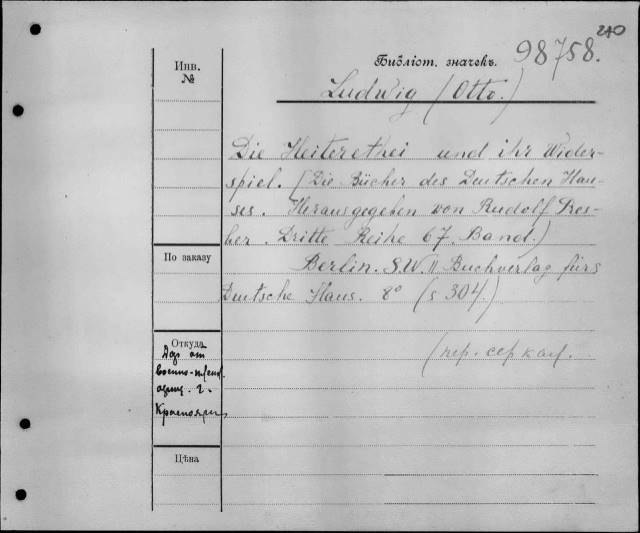 240
Библіот. значекъ. 98758.
Инв.
№
Ludwig (Otto.)
Die Heiterethei und ihr Wider-
spiel. (Die Bücher des Deutschen Hau-
ses. Herausgegeben von Rudolf Pres-
ber. Dritte Reihe 67. Band.)
По заказу
Berlin. S.W. 11 Buchverlag fürs
Deutsche Haus. 8° (s 304.)
Откуда
(пер. сер кол.
Дар от
военно-
г.
Красноярс
Цѣна